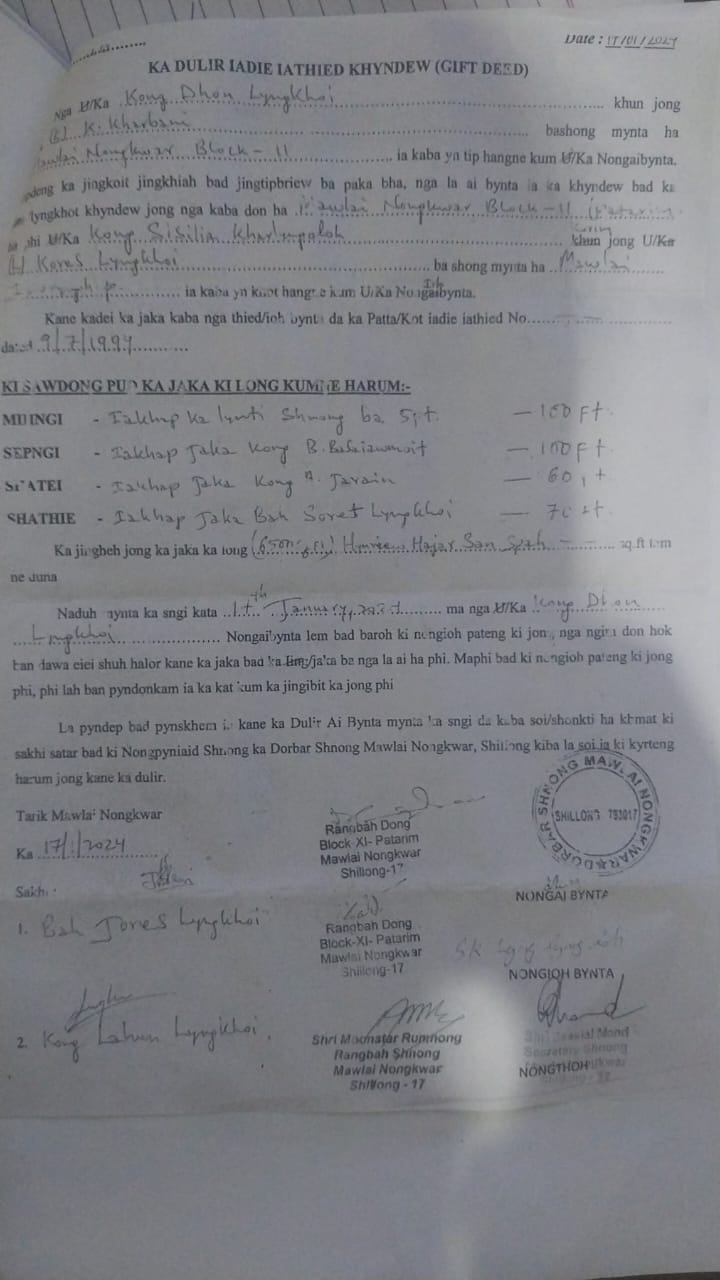 Date : 17/01/2024
KA DULIR IADIE IATHIED KHYNDEW (GIFT DEED)
Nga U/Ka Kong Dhon Lyngkhoi khun jong
(L) K. Kharbani bashong mynta ha
Nongkwar Block - II ia kaba yn tip hangne kum U/Ka Nongaibynta.
ka jingkoit jingkhiah bad jingtipbriew ba paka bha, nga la ai bynta ia ka khyndew bad ka
lyngkhot khyndew jong nga kaba don ba Mawlai Nongkwar Block - II
U/Ka Kong Sisilia khun jong U/Ka
(L) Kores Lyngkhoi ba shong mynta ha Mawlai
ia kaba yn hangne kum U/Ka Nongiohbynta.
Kane kadei ka jaka kaba nga thied/ioh bynta da ka Patta/Kot iadie iathied No.
dated 9/7/1997
KI SAWDONG PUD KA JAKA KI LONG KUMNE HARUM:-
MIHNGI - Iakhap ka lynti Shnong ba 5ft. — 100 Ft.
SEPNGI - Iakhap Jaka Kong B. — 100 Ft.
SHATEI - Iakhap Jaka Kong A. Tarain — 60
SHATHIE - Iakhap Jaka Bah Soret Lyngkhoi — 70
Ka jingheh jong ka jaka ka long Hajar San Spah sq.ft tam
ne duna
Naduh mynta ka sngi kata January, ma nga U/Ka Kong Dhon
Lyngkhoi Nongaibynta lem bad baroh ki nongioh pateng ki jong nga ngim don hok
ban dawa eiei shuh halor kane ka jaka bad ka ïing/jaka ba nga la ai ha phi. Maphi bad ki nongioh pateng ki jong
phi, phi lah ban pyndonkam ia ka kat kum ka jingibit ka jong phi
La pyndep bad pynskhem ia kane ka Dulir Ai Bynta mynta ka sngi da kaba soi/shonkti ha khmat ki
sakhi satar bad ki Nongpyniaid Shnong ka Dorbar Shnong Mawlai Nongkwar, Shillong kiba la soi ia ki kyrteng
harum jong kane ka dulir.
Tarik Mawlai Nongkwar
Ka 17/1/2024
Sakhi :
Rangbah Dong
Block-XI- Patarim
Mawlai Nongkwar
Shillong-17
DORBAR SHNONG MAWLAI NONGKWAR
SHILLONG 793017
NONGAI BYNTA
1. Bah Jores Lyngkhoi
Rangbah Dong
Block-XI- Patarim
Mawlai Nongkwar
Shillong-17
NONGIOH BYNTA
2. Kong Lyngkhoi
Rangbah Shnong
Mawlai Nongkwar
Shillong - 17
Secretary Shnong
NONGTHOH